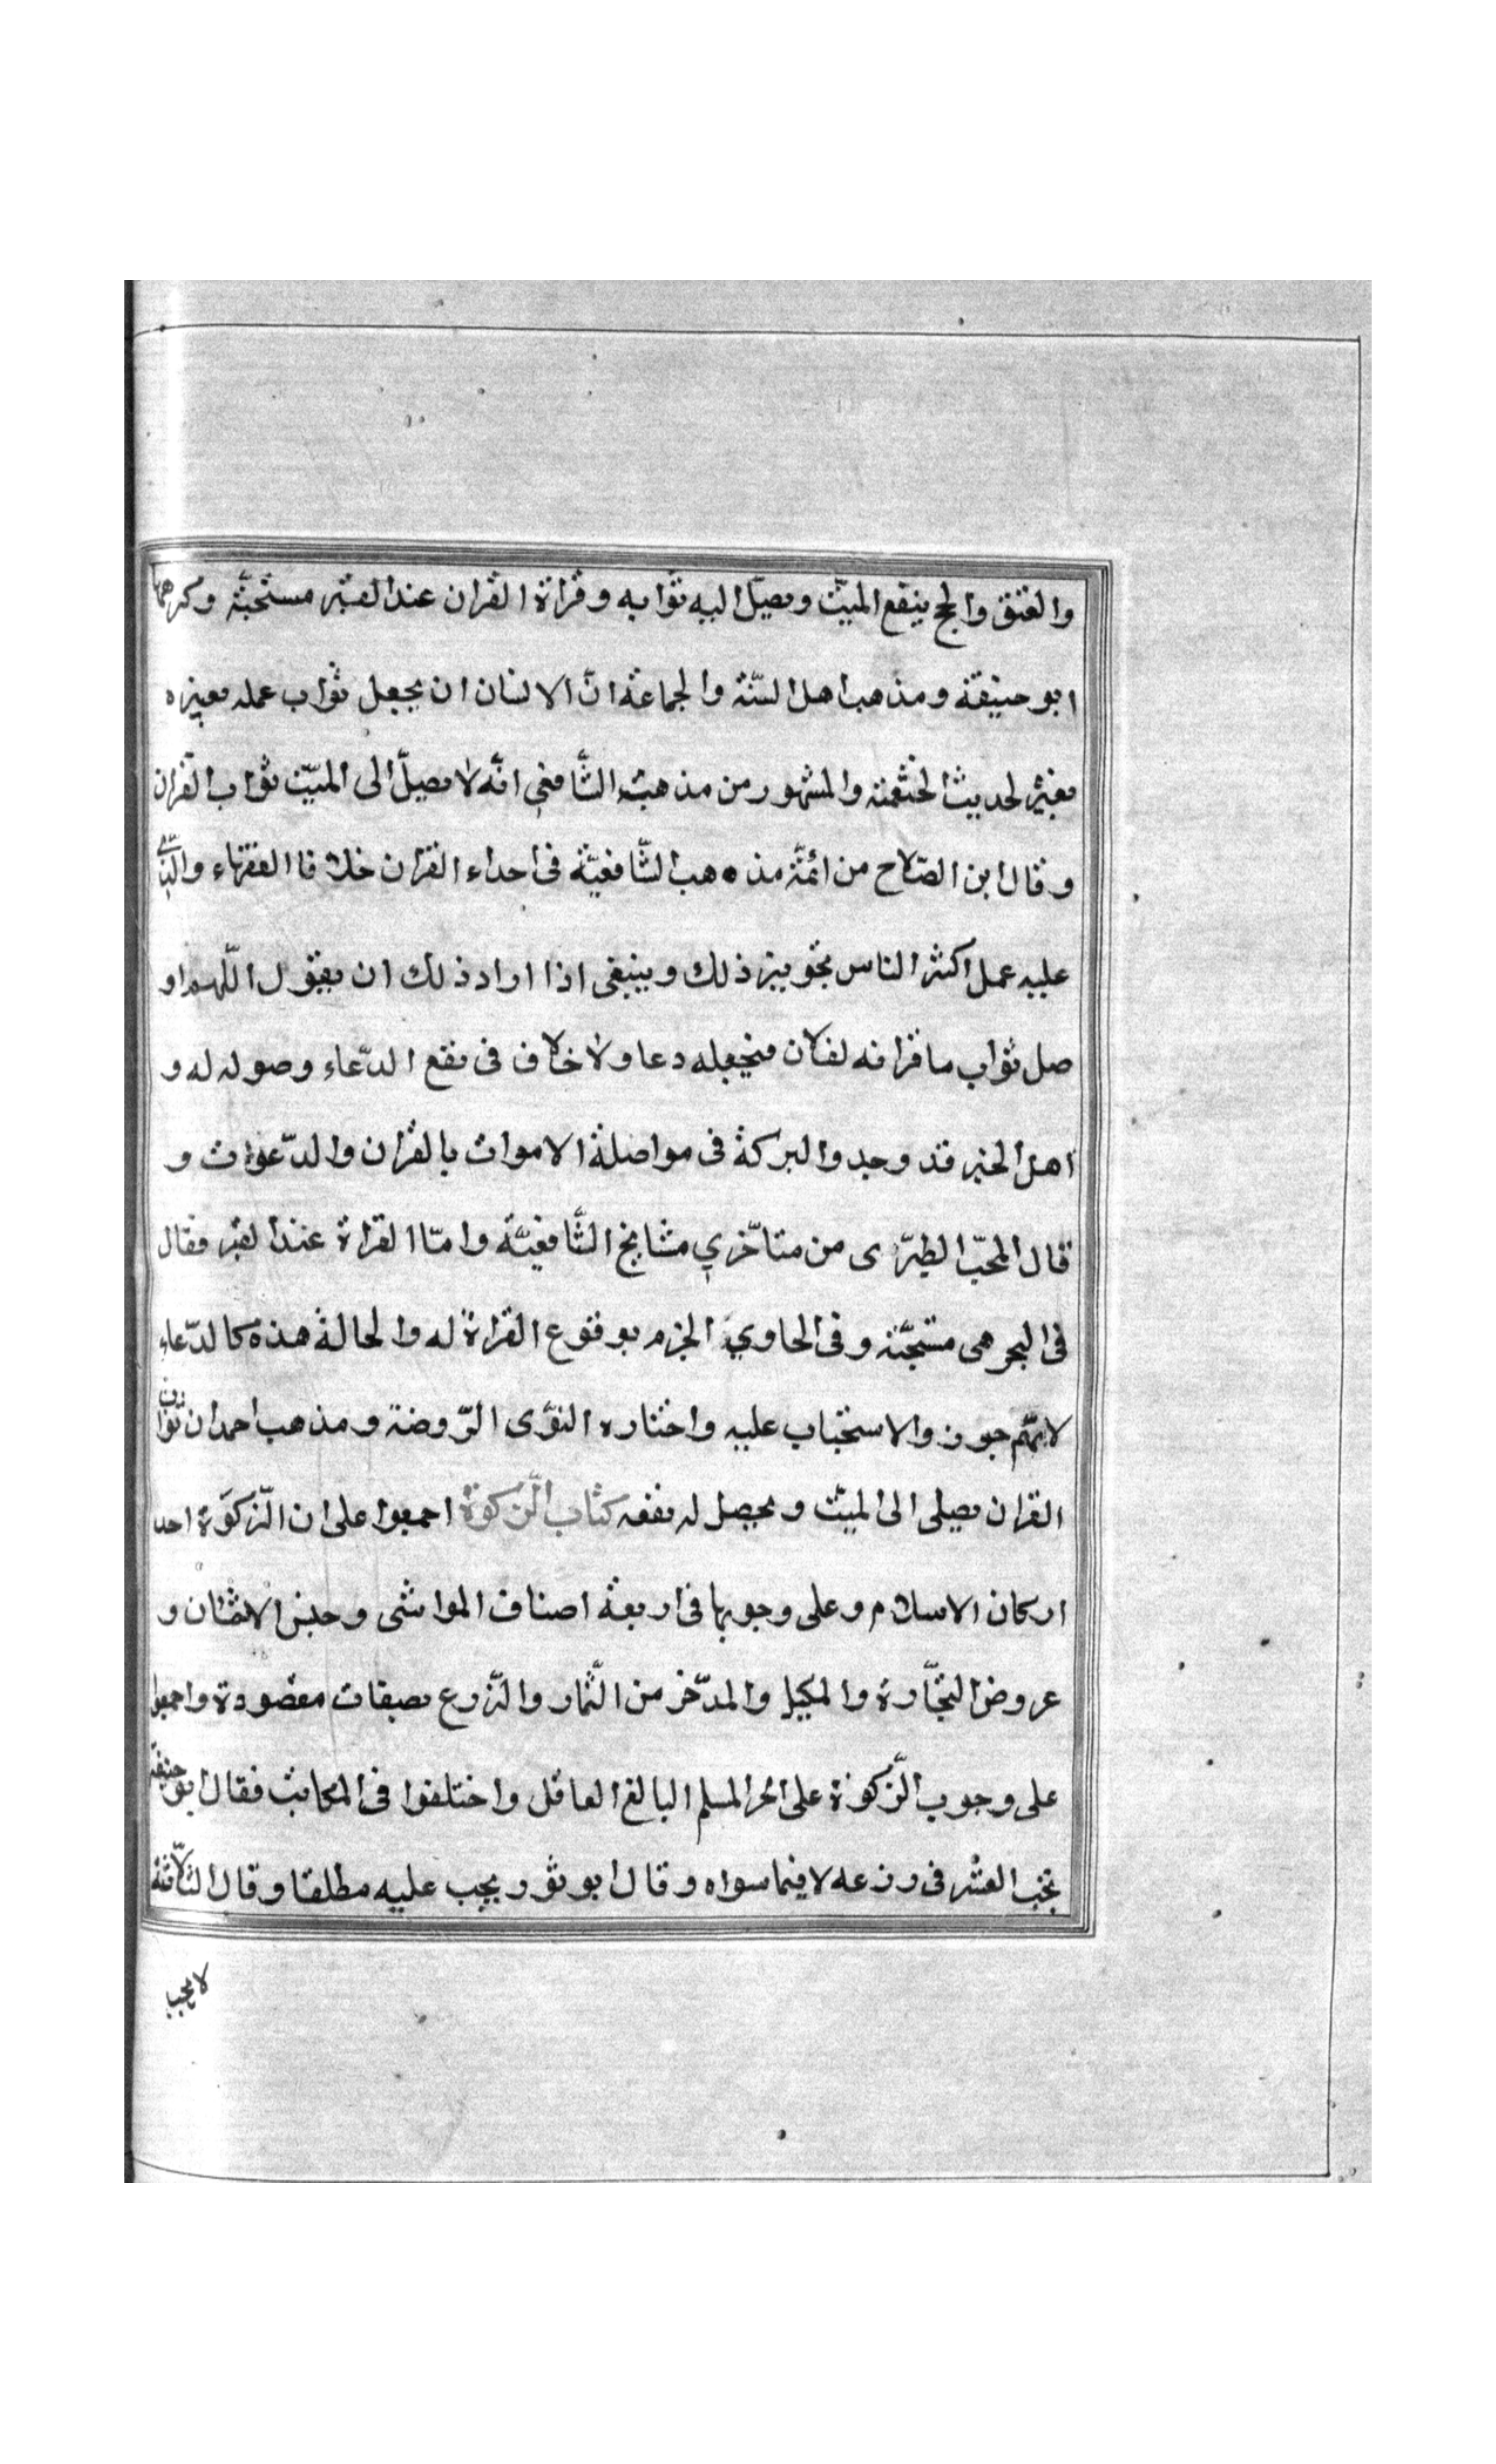 والعتق والحج ينفع الميّت ويصل اليه ثوابه وقراة القران عند القبر مستحبّة وكرهها
ابو حنيفة ومذهب اهل السّنّة والجماعة انّ الانسان ان يجعل ثواب عمله لغيره
لحديث الخثعمية والمشهور من مذهب الشّافعي انّه لا يصل الى الميّت ثواب القران
وقال ابن الصّلاح من ائمّة مذهب الشّافعيّة فى اهداء القران خلاف الفقهاء والّذي
عليه عمل اكثر الناس تجويز ذلك وينبغى اذا اراد ذلك ان يقول اللّهم او
صل ثواب ما قراته لفلان فيجعله دعا ولا خلاف فى نفع الدّعاء وصوله له و
اهل الخير قد وجدوا البركة فى مواصلة الاموات بالقران والدّعوات و
قال المحبّ الطبرى من متاخّري مشايخ الشّافعيّة وامّا القراة عند القبر فقال
فى البحر هى مستحبّة وفى الحاوي الجزم بوقوع القراة له والحالة هذه كالدّعاء
والاستحباب عليه واختاره النوى الرّوضة ومذهب احمد ان ثواب
القران يصلى الى الميّت ويحصل له نفعه كتاب الزّكوة اجمعوا على ان الزّكوة احد
اركان الاسلام وعلى وجوبها فى اربعة اصناف المواشى وجنس الاثمان و
عروض التجّارة والمكيل والمدّخر من الثّمار والزّرع بصفات مقصودة واجمعوا
على وجوب الزّكوة على الحر المسلم البالغ العاقل واختلفوا فى المكاتب فقال ابو حنيفة
يجب العشر فى زرعه لا فيما سواه وقال ابو ثور يجب عليه مطلقا وقال الثلاثة
لا يجب